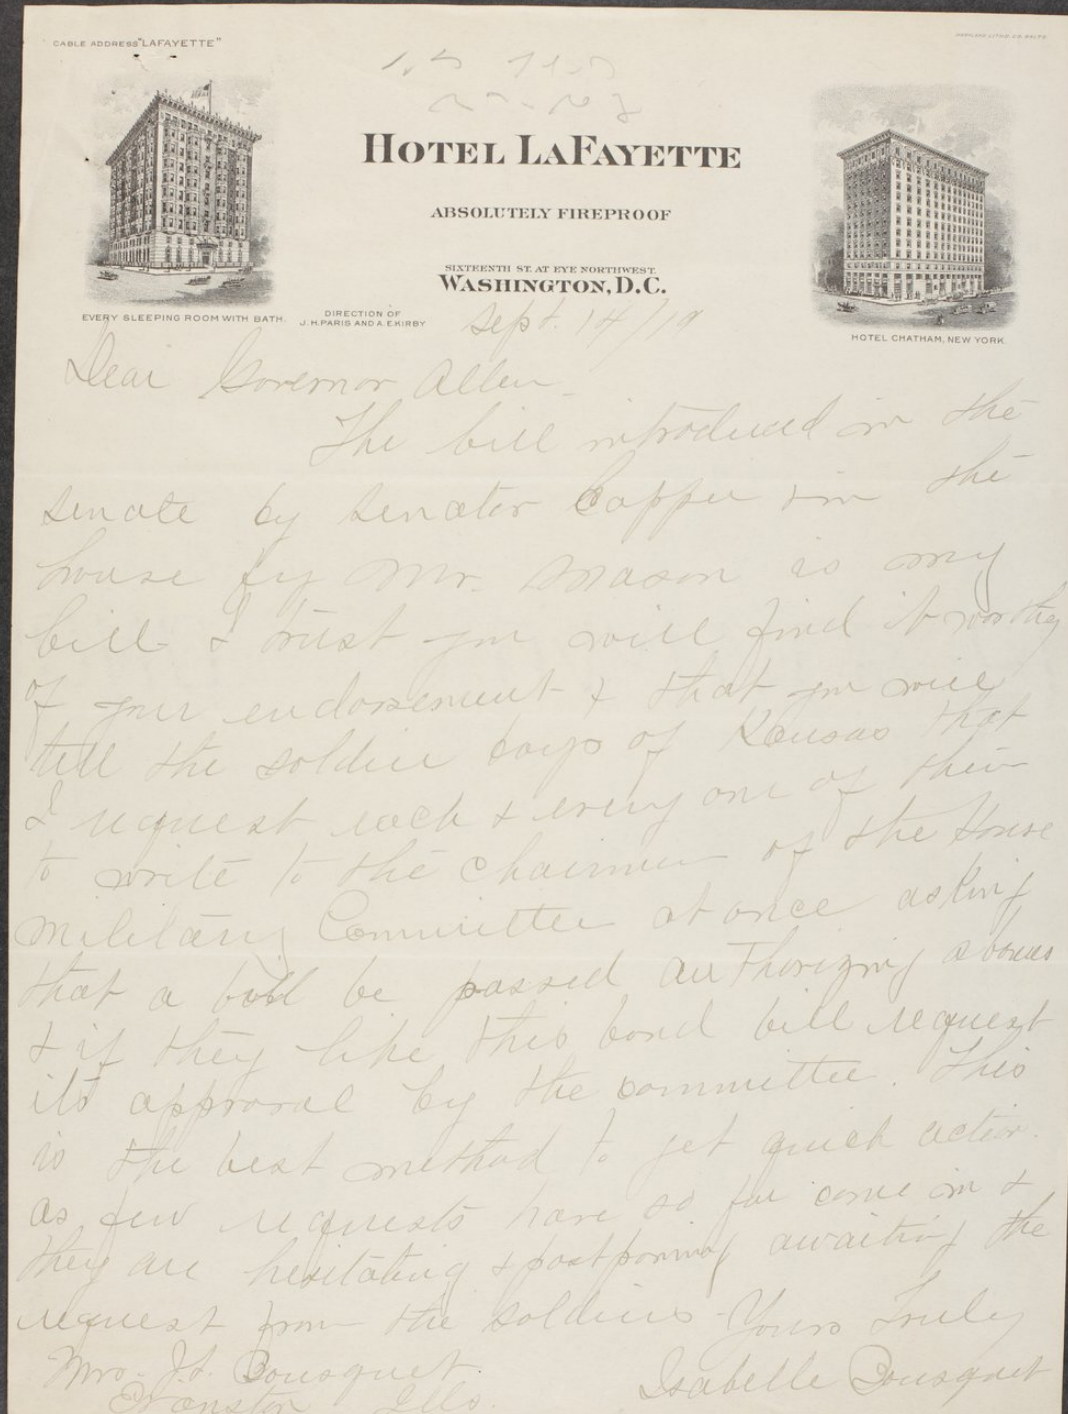 CABLE ADDRESS "LAFAYETTE"
HOTEL LAFAYETTE
ABSOLUTELY FIREPROOF
SIXTEENTH ST. AT EYE NORTHWEST.
WASHINGTON, D.C.
EVERY SLEEPING ROOM WITH BATH.
DIRECTION OF
J.H. PARIS AND A.E. KIRBY
HOTEL CHATHAM, NEW YORK.
Sept. 14/19
Dear Governor Allen
The bill introduced in the
senate by Senator Capper & in the
house by Mr. Mason is my
bill & I trust you will find it worthy
of your endorsement & that you will
tell the soldier boys of Kansas that
I request each & every one of them
to write to the Chairman of the House
Military Committee at once asking
that a bill be passed authorizing a bonus
& if they like this bond bill request
its approval by the committee. This
is the best method to get quick action.
as few requests have so far come in &
they are hesitating & postponing awaiting the
request from the soldiers - Yours Truly
Mrs. J.L. Bousquet. Isabelle Bousquet
Evanston Ills.